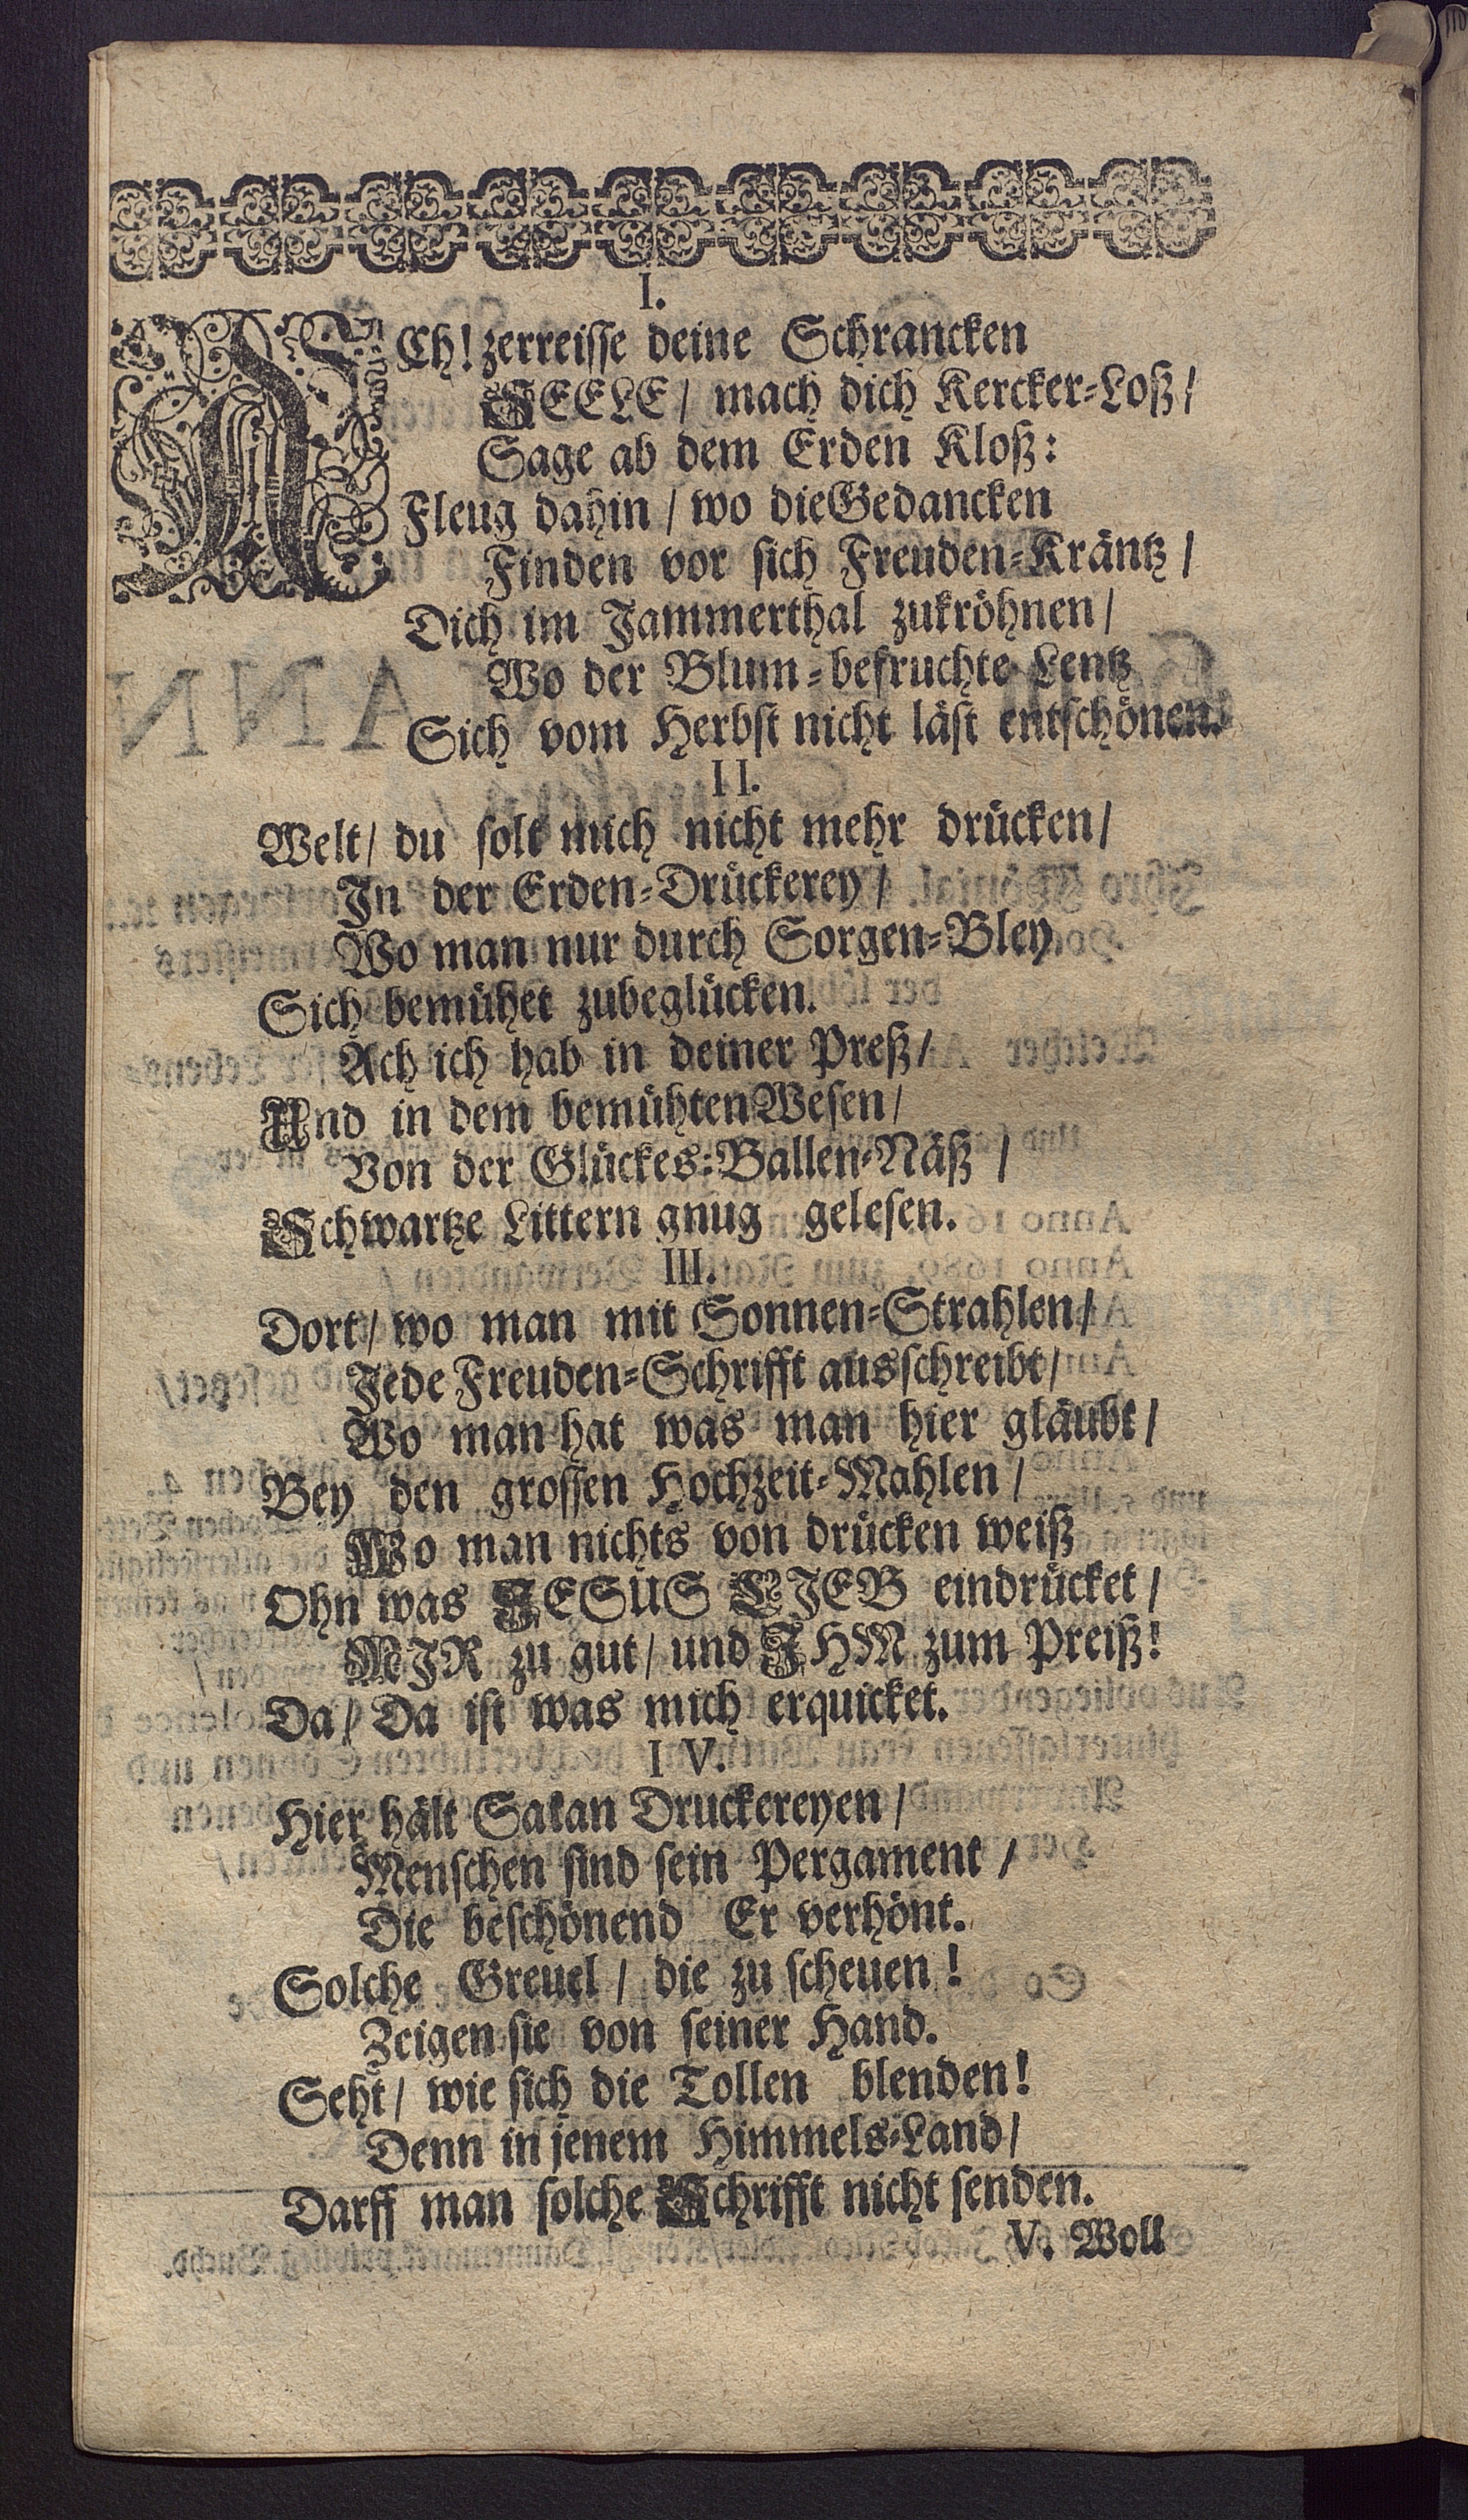 I.
ACh! zerreisse deine Schrancken
SEELE / mach dich Kercker-Loß /
Sage ab dem Erden Kloß:
Fleug dahin / wo dieGedancken
Finden vor sich Freuden-Kräntz /
Dich im Jammerthal zukröhnen /
Wo der Blum-befruchte Lentz
Sich vom Herbst nicht läst entschönen.
II.
Welt / du solt mich nicht mehr drücken /
In der Erden-Drückerey /
Wo man nur durch Sorgen-Bley
Sich bemühet zubeglücken.
Ach ich hab in deiner Preß /
Und in dem bemühten Wesen /
Von der Glückes-Ballen-Näß /
Schwartze Littern gnug gelesen.
III.
Dort / wo man mit Sonnen-Strahlen /
Jede Freuden-Schrifft ausschreibt /
Wo man hat was man hier gläubt /
Bey den grossen Hochzeit-Mahlen /
Wo man nichts von drücken weiß
Ohn was JESUS LIEB eindrücket /
MIR zu gut / und IHM zum Preiß!
Da / Da ist was mich erquicket.
IV.
Hier hält Satan Druckereyen /
Menschen sind sein Pergament /
Die beschönend Er verhönt.
Solche Greuel / die zu scheuen!
Zeigen sie von seiner Hand.
Seht / wie sich die Tollen blenden!
Denn in jenem Himmels-Land /
Darff man solche Schrifft nicht senden.
V. Woll